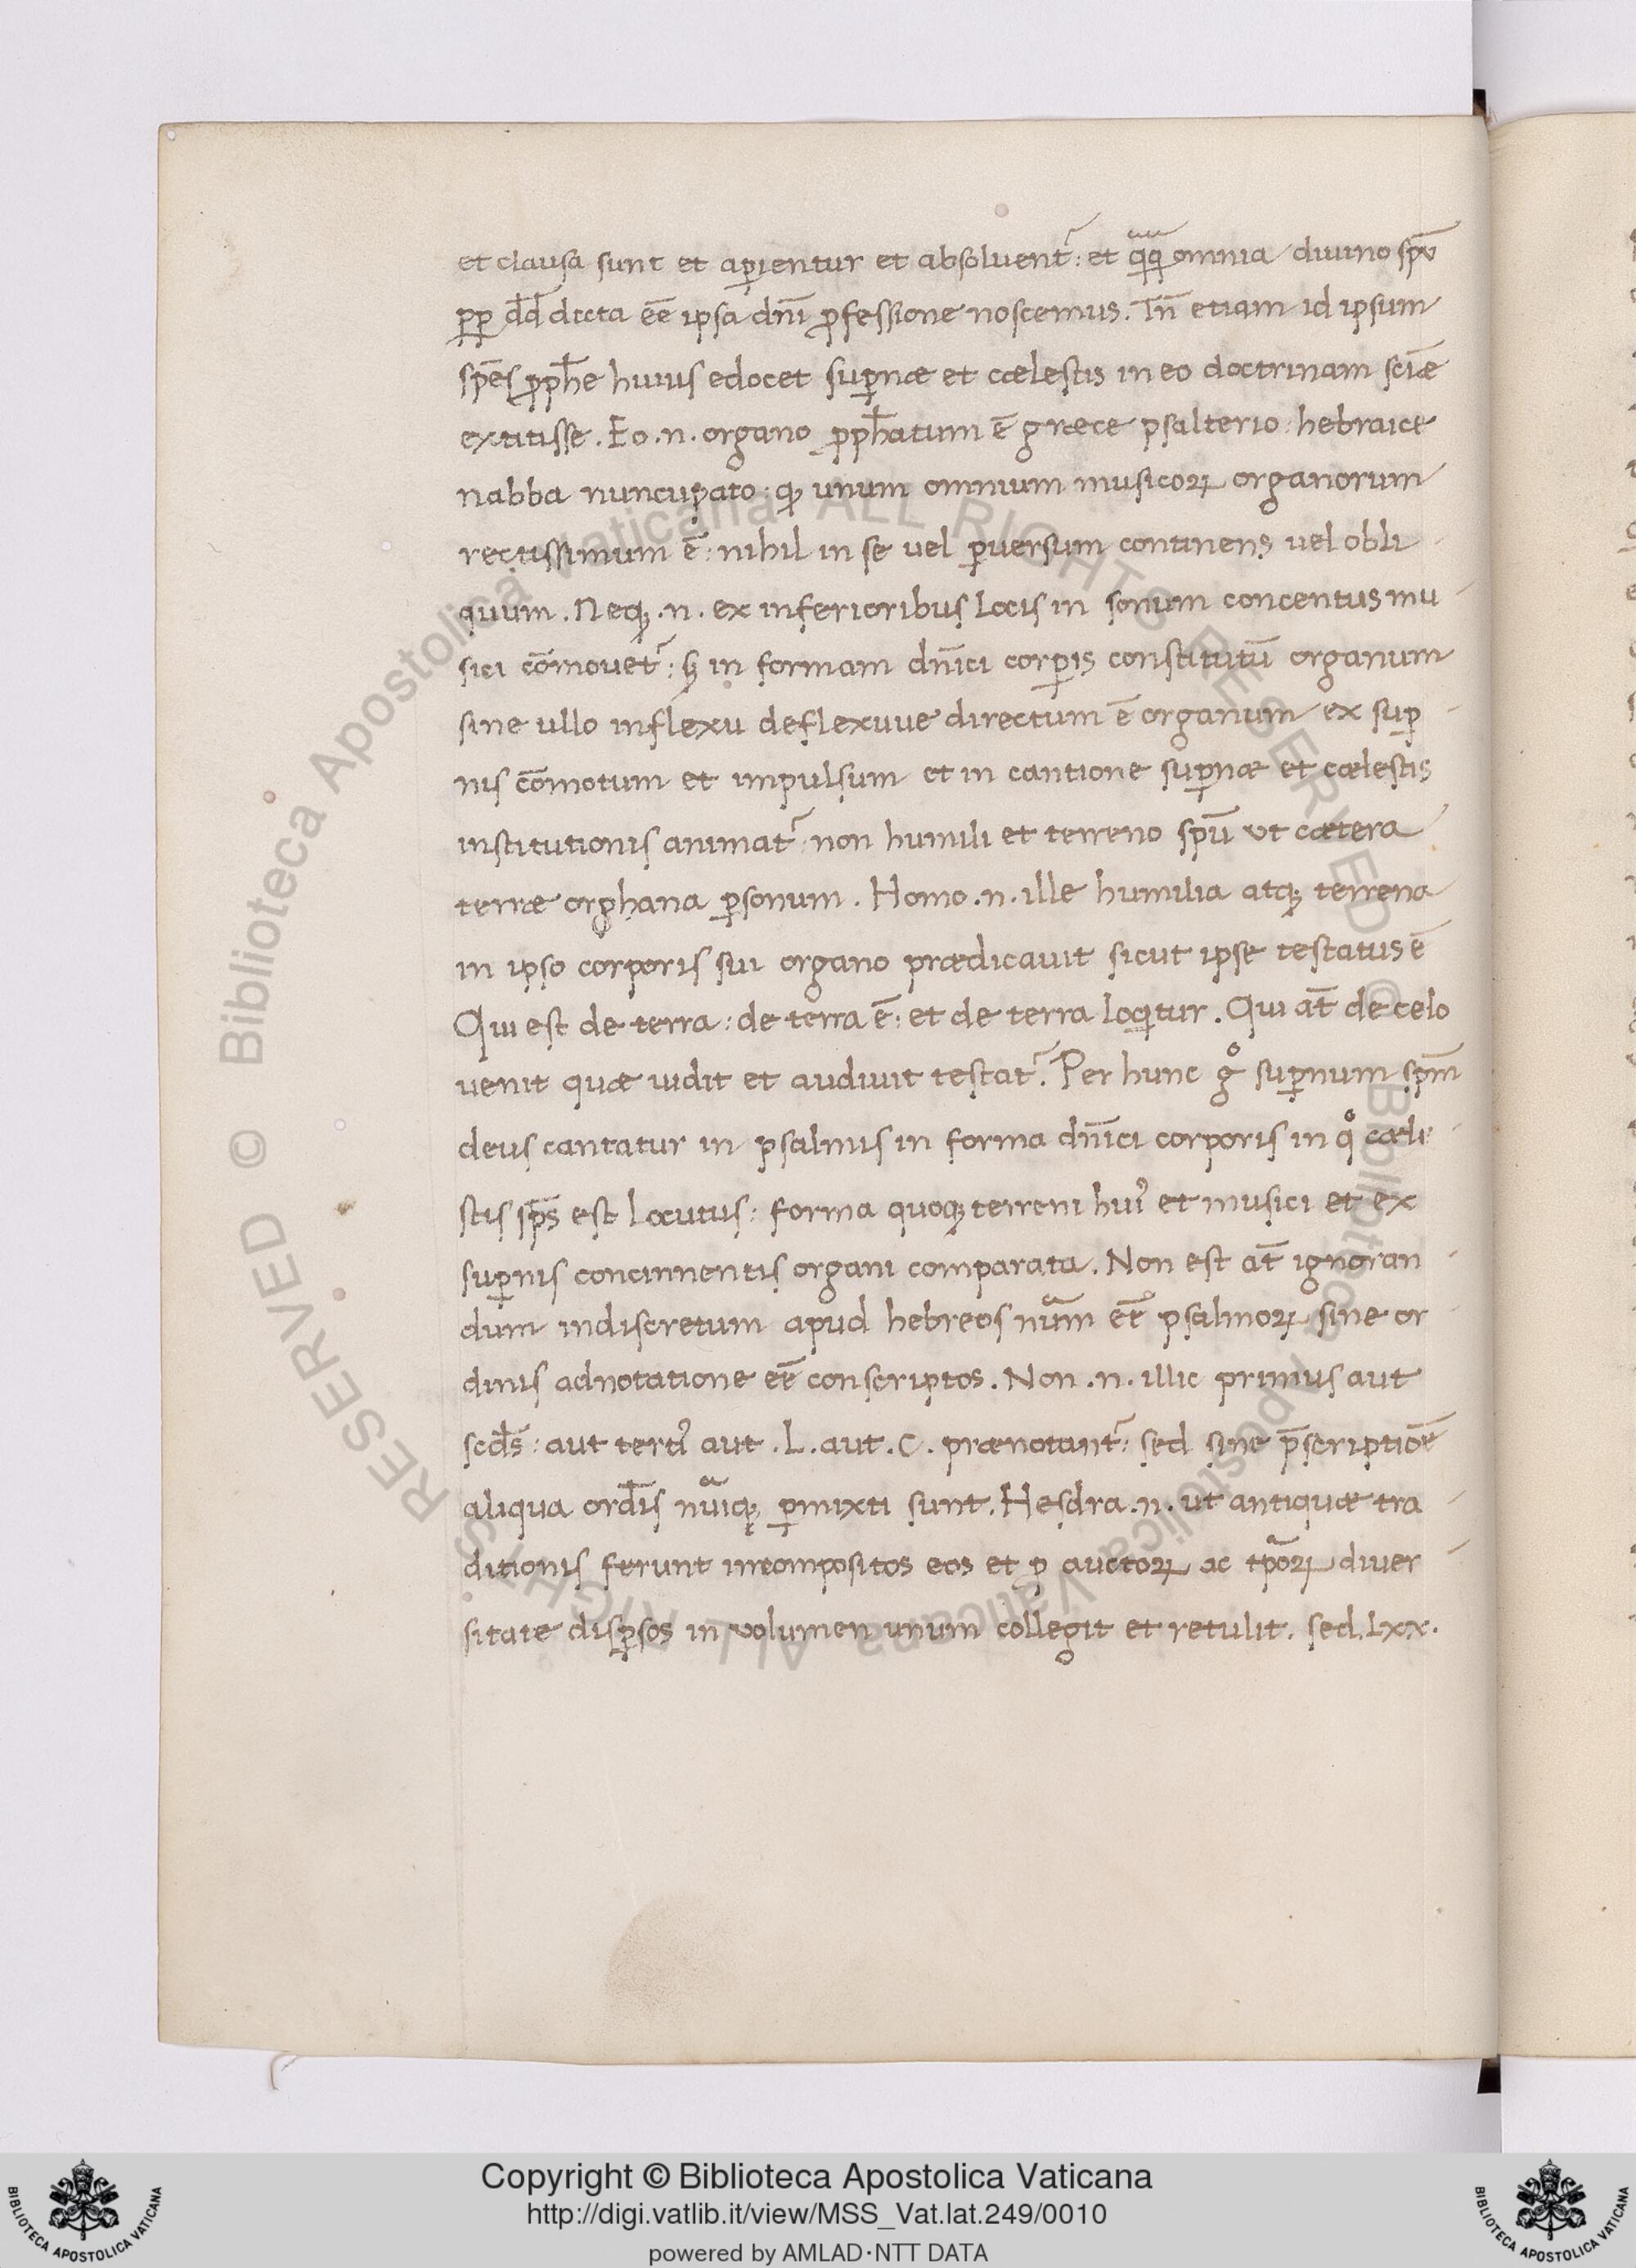 et clausa sunt et ap̲ientur et absoluent᷑: et qᷓqᷓ omnia diuino sp̄u
pp̲ d̄d dicta eē ipsa dn̄i ꝓfessione noscemus. Tn̄ etiam id ipsum
sp̄es ꝓph̄e huius edocet sup̲næ et cælestis in eo doctrinam sciǣ
extitisse. Eo .n. organo ꝓph̄atum ē græce psalterio: hebraice
nabba nuncupato: qꝫ unum omnium musicoꝝ organorum
rectissimum ē: nihil in se uel ꝑuersum continens uel obli
quum. Neqꝫ .n. ex inferioribus locis in sonum concentus mu
sici cōmouet᷑: sꝫ in formam dn̄ici corꝑis constitutū organum
sine ullo inflexu deflexuue directum ē organum ex suꝑ
nis cōmotum et impulsum et in cantione suꝑnæ et cælestis
institutionis animat᷑: non humili et terreno sp̄u ut cætera
terræ orghana ꝑsonum. Homo .n. ille humilia atqꝫ terrena
in ipso corporis sui organo prædicauit sicut ipse testatus ē
Qui est de terra: de terra ē: et de terra loqitur. Qui at̄ de celo
uenit quæ uidit et audiuit testat᷑. Per hunc gͦ suꝑnum sp̄m
deus cantatur in psalmis in forma dn̄ici corporis in qͦ cæle
stis sp̄s est locutus: forma quoqꝫ terreni huiꝰ et musici et ex
suꝑnis concinnentis organi comparata. Non est at̄ ignoran
dum indiscretum apud hebreos nūm eē psalmoꝝ sine or
dinis adnotatione eē conscriptos. Non .n. illic primus aut
scd̄s: aut tertiꝰ aut .L. aut .C. prænotant᷑: sed sine p̄scriptiōe
aliqua ord̄is nūiqꝫ ꝑmixti sunt. Hesdra .n. ut antiquæ tra
ditionis ferunt incompositos eos et ꝓ auctoꝝ ac tp̄oꝝ diuer
sitate disꝑsos in volumen unum collegit et retulit. sed .Lxx.
Copyright © Biblioteca Apostolica Vaticana
http://digi.vatlib.it/view/MSS_Vat.lat.249/0010
powered by AMLAD·NTT DATA